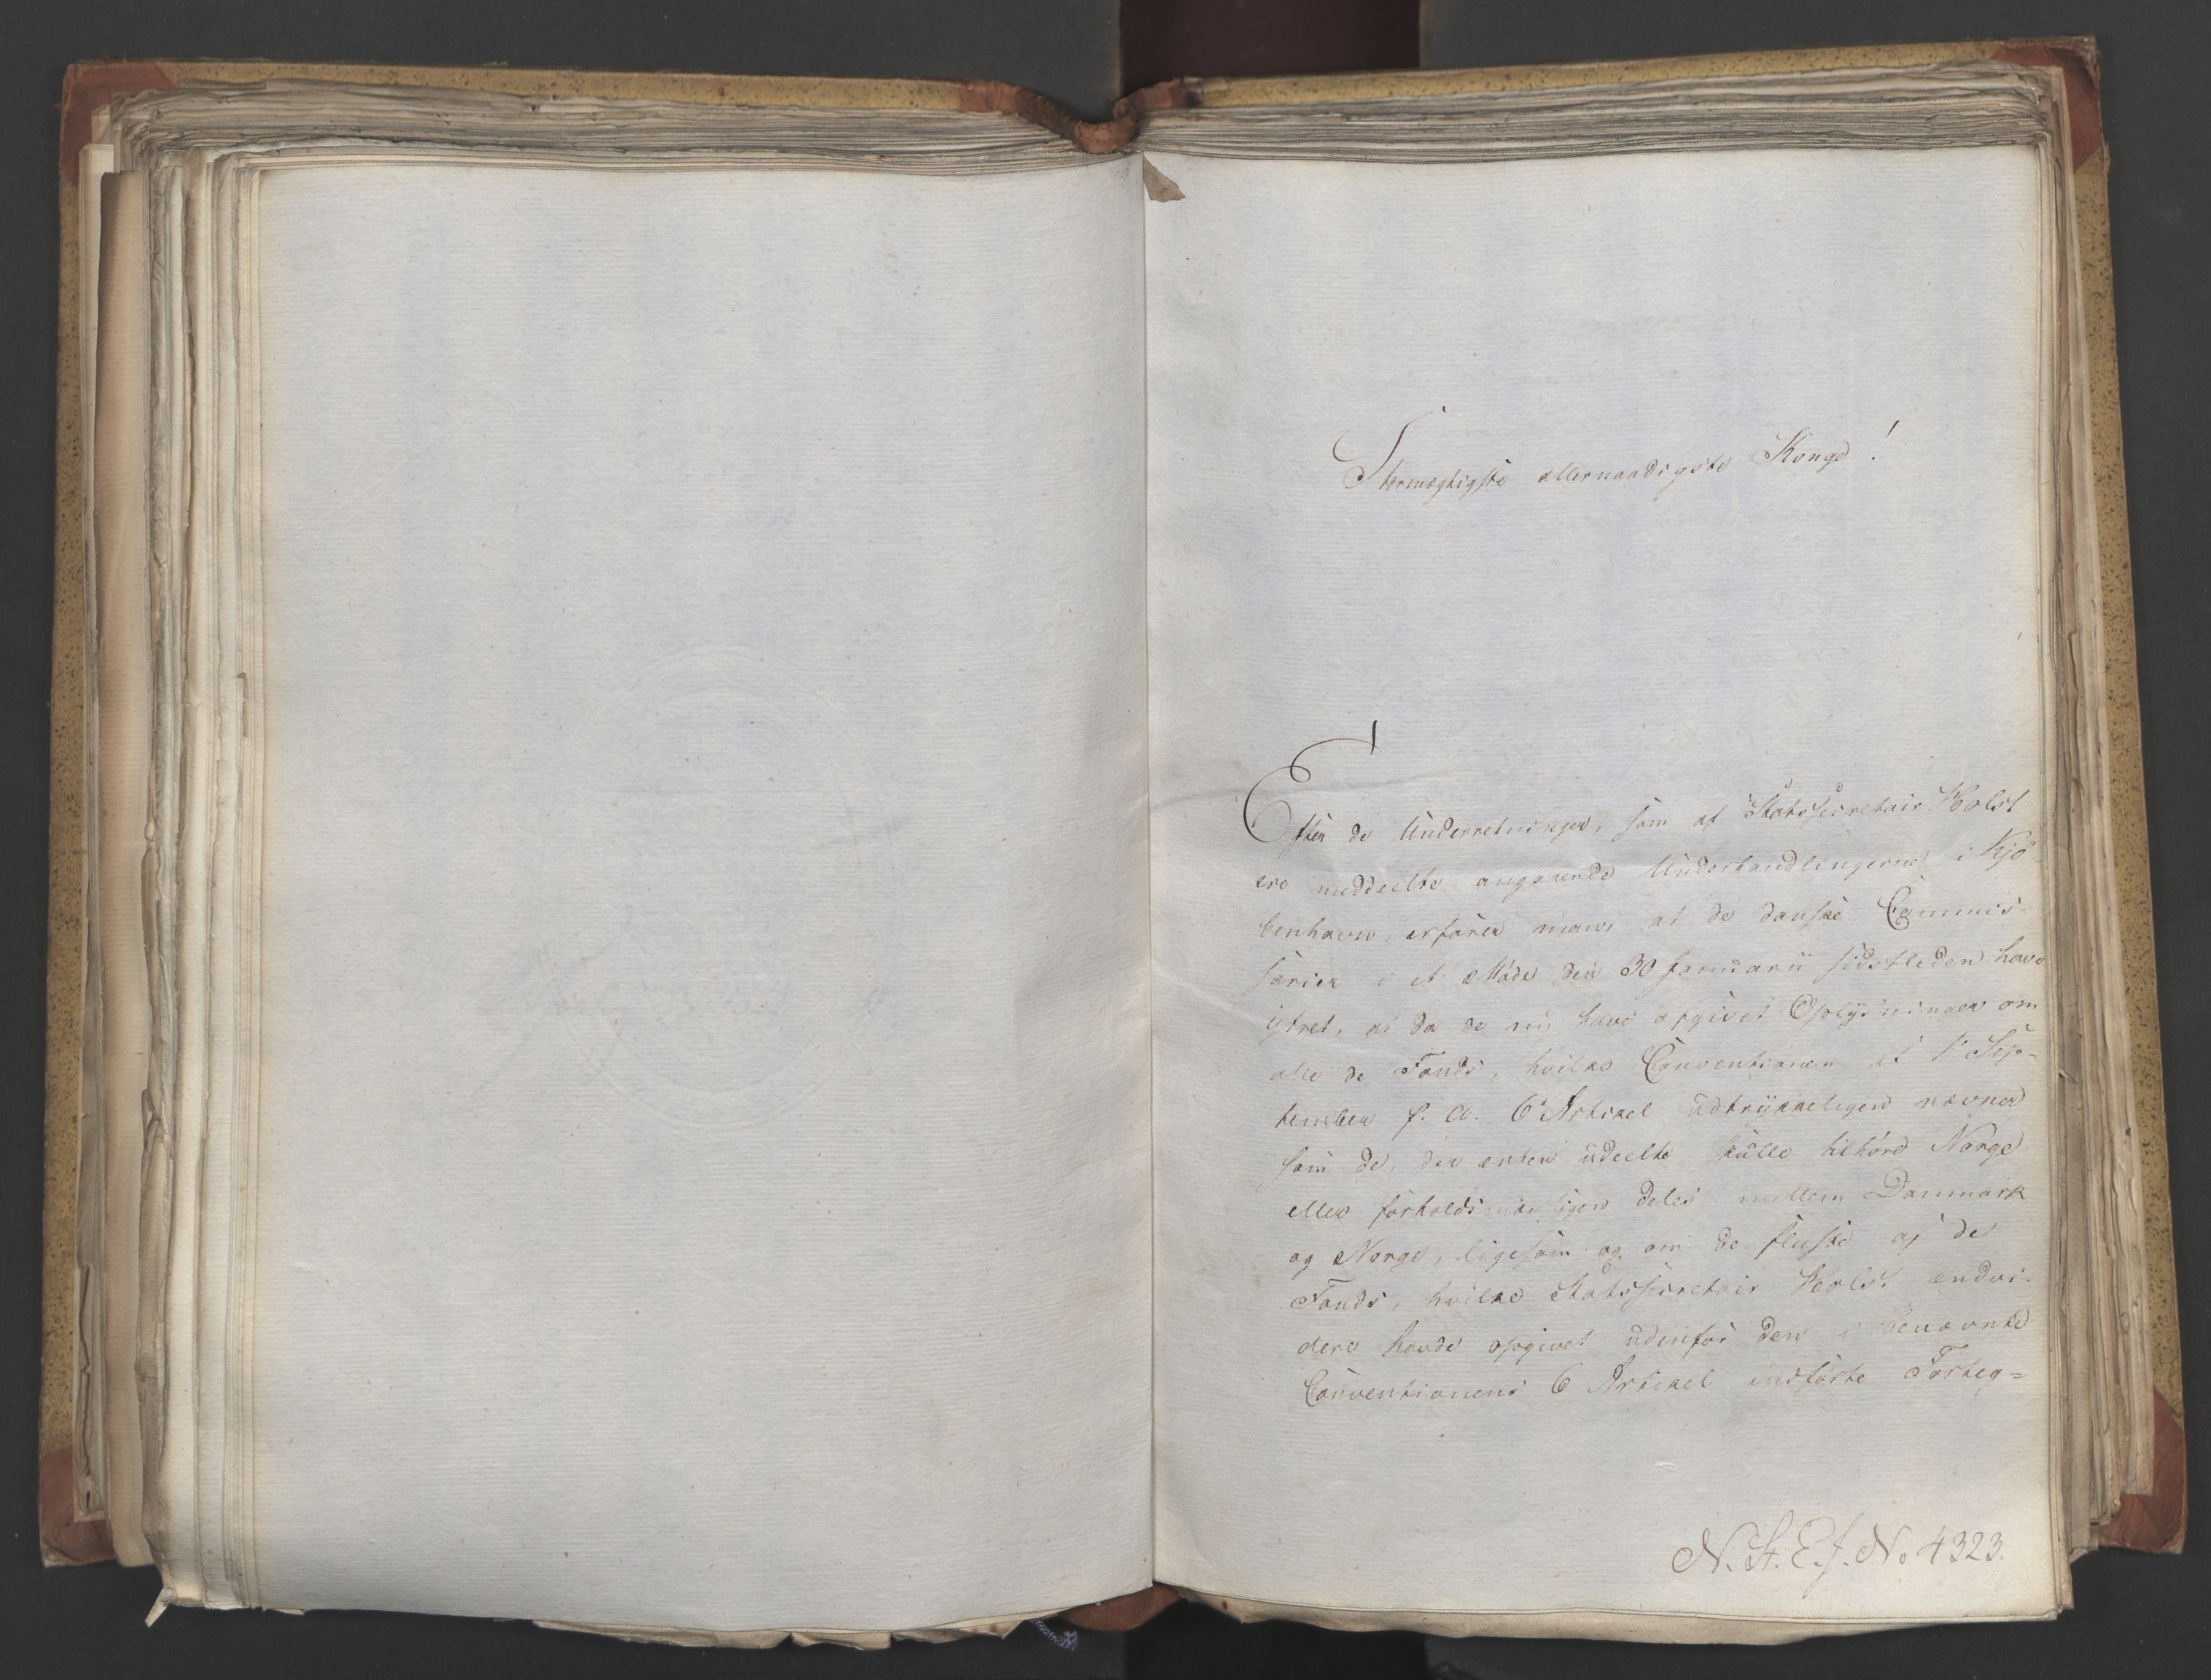 Stormægtigste allernaadigste Konge!
Efter de Underretninger, som af Statssecretair Holst
ere meddeelte angaaende Underhandlingerne i Kjö-
benhavn, erfarer man, at de danske Commis-
sarier i et Möde den 30 Januarii sidstleden have
yttret, at da de nu have afgivet Oplysninger om
alle de Fonds, hvilke Conventionen af 1ste Sep-
tember f. A. 6te Artikel udtrykkeligen nævner
som de, der enten udeelte skulle tilhöre Norge
eller forholdsmæssigen deles mellem Danmark
og Norge, ligesom og om de fleste af de
Fonds, hvilke Statssecretair Holst endvi-
dere havde opgivet udenfor den i benævnte
Conventionens 6 Artikel indförte Forteg=
N. St. E. J. No 4323.